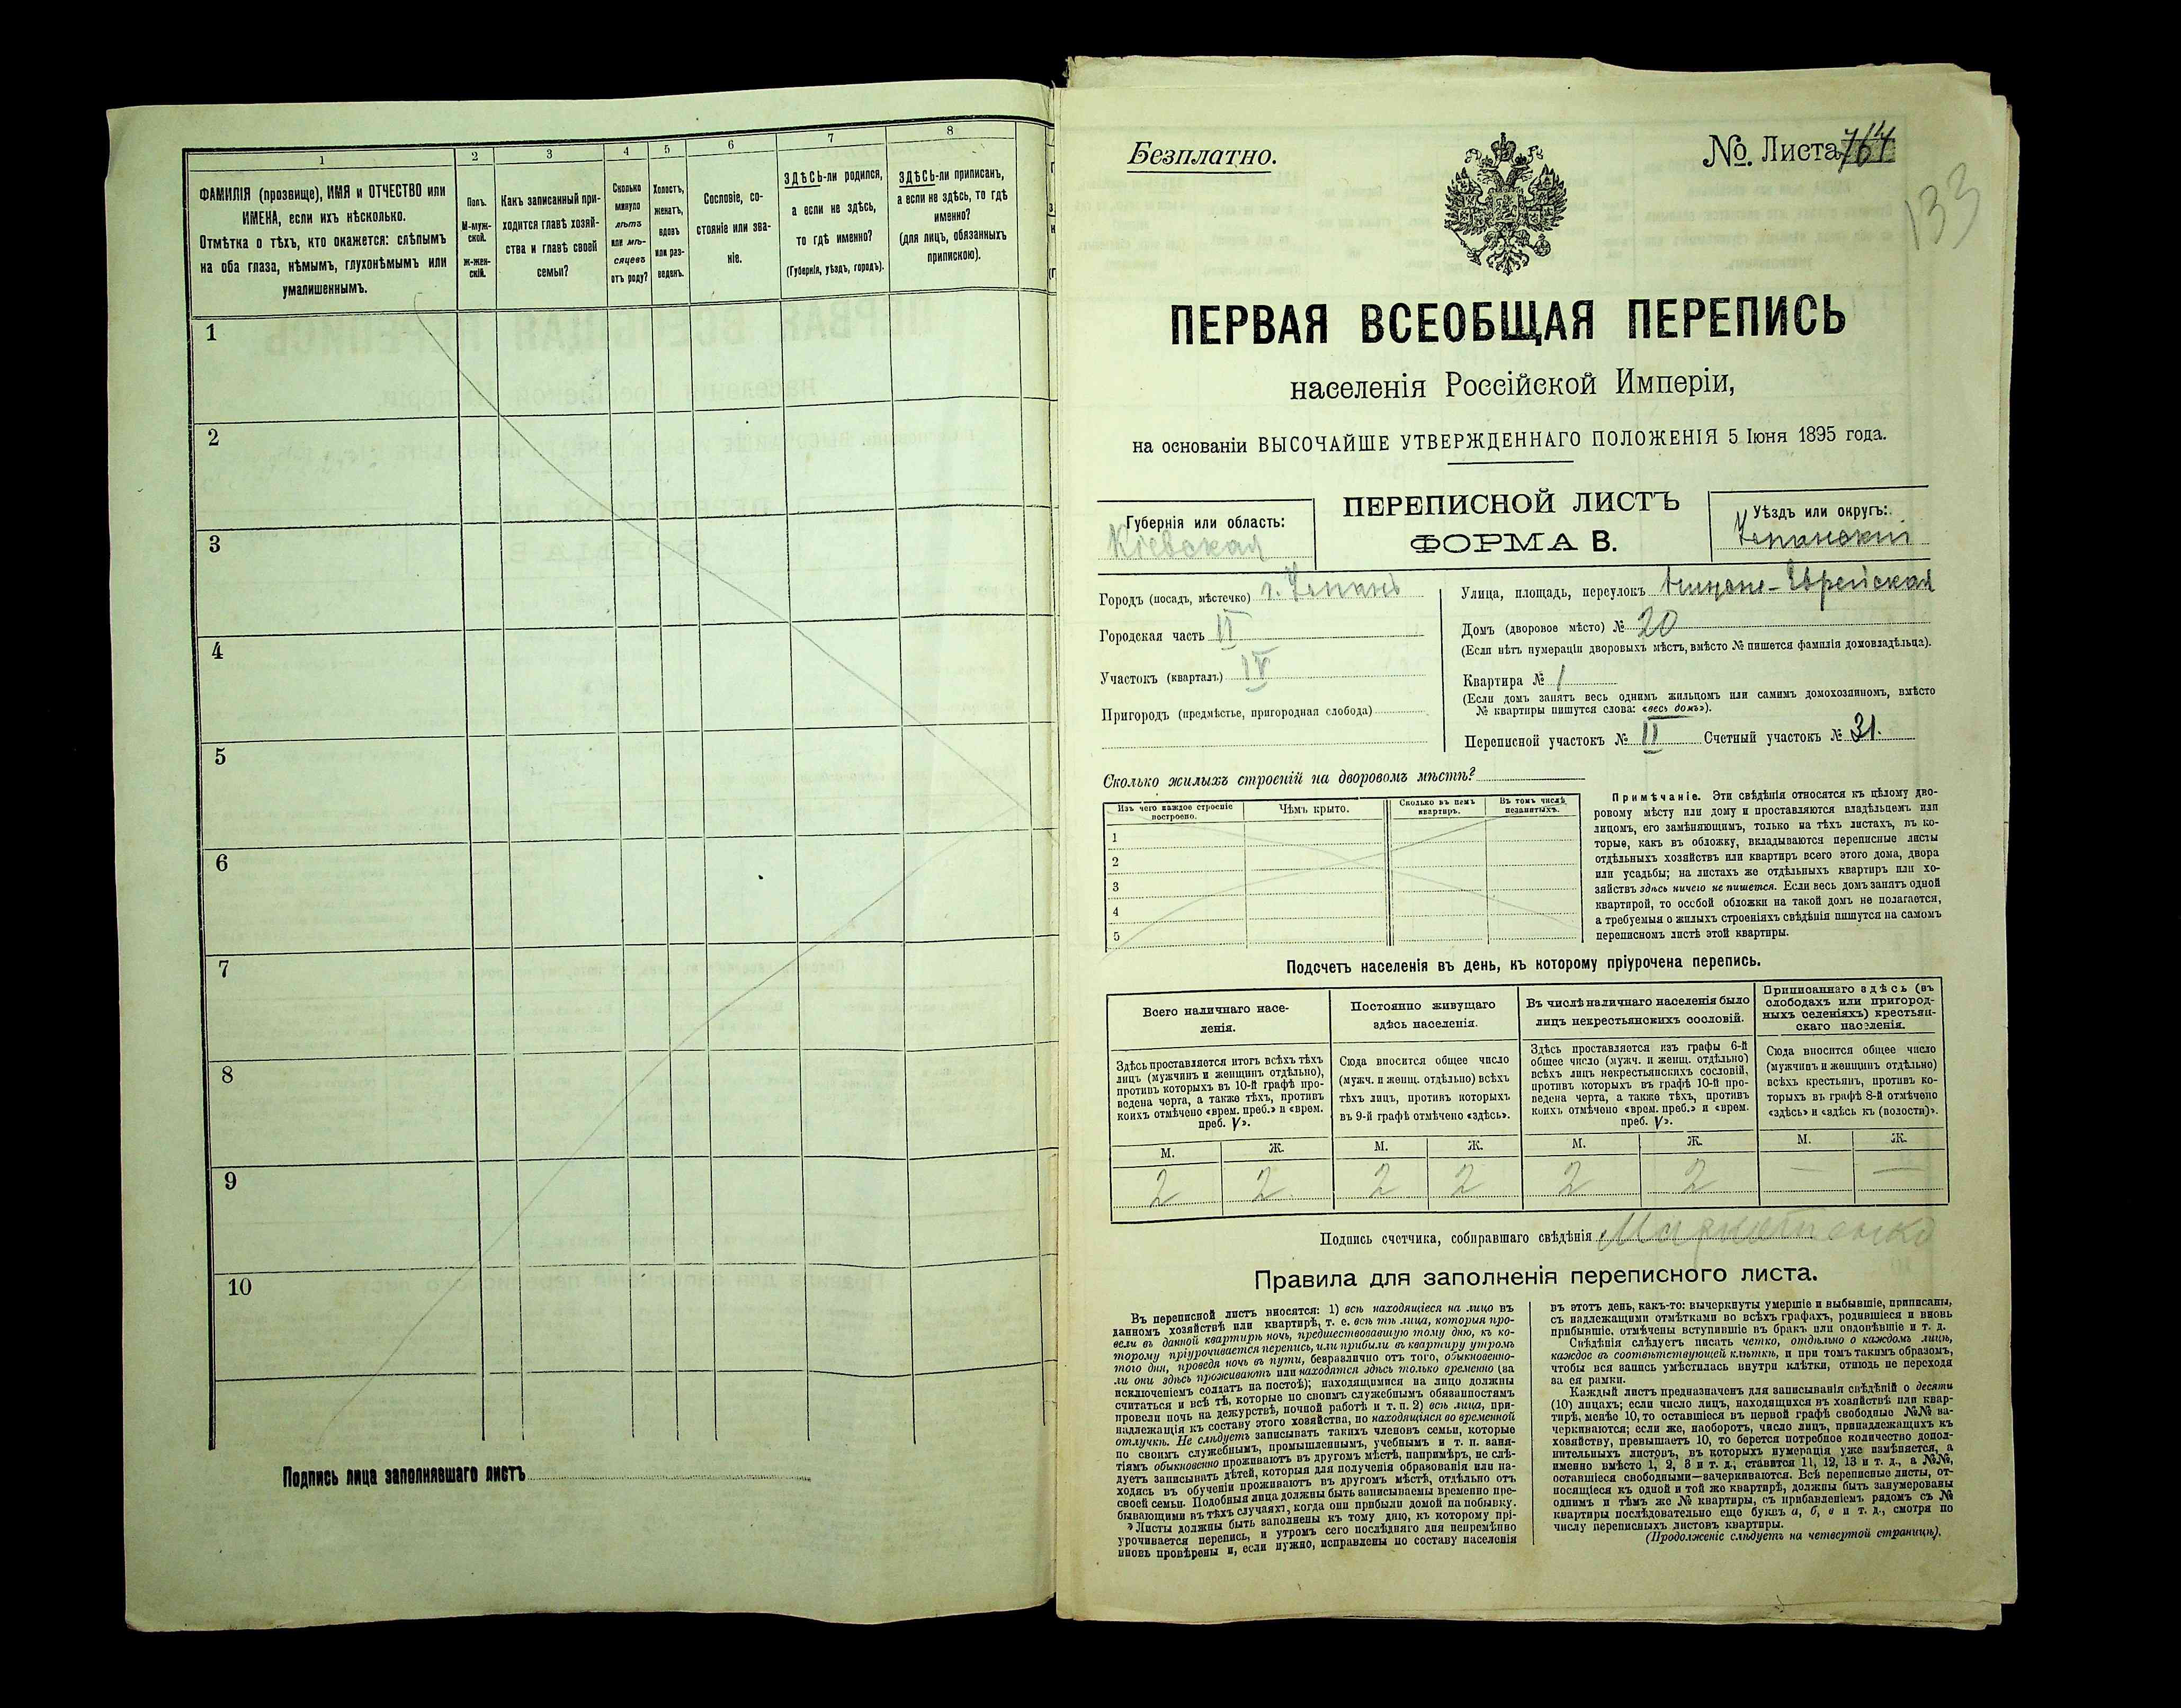 1
2
3
4
5
6
7
8
ФАМИЛІЯ (прозвище), ИМЯ и ОТЧЕСТВО или
ИМЕНА, если ихъ нѣсколько.
Отмѣтка о тѣхъ, кто окажется: слѣпымъ
на оба глаза, нѣмымъ, глухонѣмымъ или
умалишеннымъ.
Полъ.
М-муж-
ской.
ж-жен-
скій.
Какъ записанный при-
ходится главѣ хозяй-
ства и главѣ своей
семьи?
Сколько
минуло
лѣтъ
или мѣ-
сяцевъ
отъ роду?
Холостъ,
женатъ,
вдовъ
или раз-
веденъ.
Сословіе, со-
стояніе или зва-
ніе.
ЗДѢСЬ-ли родился,
а если не здѣсь,
то гдѣ именно?
(Губернія, уѣздъ, городъ).
ЗДѢСЬ-ли приписанъ,
а если не здѣсь, то гдѣ
именно?
(для лицъ, обязанныхъ
припискою).
1
2
3
4
5
6
7
8
9
10
Подпись лица заполнявшаго листъ
Безплатно.
№ Листа
133
ПЕРВАЯ ВСЕОБЩАЯ ПЕРЕПИСЬ
населенія Россійской Имперіи,
на основаніи ВЫСОЧАЙШЕ УТВЕРЖДЕННАГО ПОЛОЖЕНІЯ 5 Іюня 1895 года.
Губернія или область:
Кіевская
ПЕРЕПИСНОЙ ЛИСТЪ
ФОРМА В.
Уѣздъ или округъ:
Уманскій
Городъ (посадъ, мѣстечко) г. Умань
Городская часть II
Участокъ (кварталъ) IV
Пригородъ (предмѣстье, пригородная слобода)
Улица, площадь, переулокъ Нижне-Еврейская
Домъ (дворовое мѣсто) № 20
(Если нѣтъ нумераціи дворовыхъ мѣстъ, вмѣсто № пишется фамилія домовладѣльца).
Квартира № 1
(Если домъ занятъ весь однимъ жильцомъ или самимъ домохозяиномъ, вмѣсто
№ квартиры пишутся слова: «весь домъ»).
Переписной участокъ № II Счетный участокъ № 31.
Сколько жилыхъ строеній на дворовомъ мѣстѣ?
Изъ чего каждое строеніе
построено.
Чѣмъ крыто.
Сколько въ немъ
квартиръ.
Въ томъ числѣ
незанятыхъ.
1
2
3
4
5
Примѣчаніе. Эти свѣдѣнія относятся къ цѣлому дво-
ровому мѣсту или дому и проставляются владѣльцемъ или
лицомъ, его замѣняющимъ, только на тѣхъ листахъ, въ ко-
торые, какъ въ обложку, вкладываются переписные листы
отдѣльныхъ хозяйствъ или квартиръ всего этого дома, двора
или усадьбы; на листахъ же отдѣльныхъ квартиръ или хо-
зяйствъ здѣсь ничего не пишется. Если весь домъ занятъ одной
квартирой, то особой обложки на такой домъ не полагается,
а требуемыя о жилыхъ строеніяхъ свѣдѣнія пишутся на самомъ
переписномъ листѣ этой квартиры.
Подсчетъ населенія въ день, къ которому пріурочена перепись.
Всего наличнаго насе-
ленія.
Постоянно живущаго
здѣсь населенія.
Въ числѣ наличнаго населенія было
лицъ некрестьянскихъ сословій.
Приписаннаго здѣсь (въ
слободахъ или пригород-
ныхъ селеніяхъ) крестьян-
скаго населенія.
Здѣсь проставляется итогъ всѣхъ тѣхъ
лицъ (мужчинъ и женщинъ отдѣльно),
противъ которыхъ въ 10-й графѣ про-
ведена черта, а также тѣхъ, противъ
коихъ отмѣчено «врем. преб.» и «врем.
преб. V».
Сюда вносится общее число
(мужч. и женщ. отдѣльно) всѣхъ
тѣхъ лицъ, противъ которыхъ
въ 9-й графѣ отмѣчено «здѣсь».
Здѣсь проставляется изъ графы 6-й
общее число (мужч. и женщ. отдѣльно)
всѣхъ лицъ некрестьянскихъ сословій,
противъ которыхъ въ графѣ 10-й про-
ведена черта, а также тѣхъ, противъ
коихъ отмѣчено «врем. преб.» и «врем.
преб. V».
Сюда вносится общее число
(мужчинъ и женщинъ отдѣльно)
всѣхъ крестьянъ, противъ ко-
торыхъ въ графѣ 8-й отмѣчено
«здѣсь» и «здѣсь къ (волости)».
М. Ж. М. Ж. М. Ж. М. Ж.
2 2 2 2 2 2 — —
Подпись счетчика, собиравшаго свѣдѣнія
Правила для заполненія переписного листа.
Въ переписной листъ вносятся: 1) всѣ находящіеся на лицо въ
данномъ хозяйствѣ или квартирѣ, т. е. всѣ тѣ лица, которыя про-
вели въ данной квартирѣ ночь, предшествовавшую тому дню, къ ко-
торому пріурочивается перепись, или прибыли въ квартиру утромъ
того дня, проведя ночь въ пути, безразлично отъ того, обыкновенно-
ли они здѣсь проживаютъ или находятся здѣсь только временно (за
исключеніемъ солдатъ на постоѣ); находящимися на лицо должны
считаться и всѣ тѣ, которые по своимъ служебнымъ обязанностямъ
провели ночь на дежурствѣ, ночной работѣ и т. п. 2) всѣ лица, при-
надлежащія къ составу этого хозяйства, но находящіяся во временной
отлучкѣ. Не слѣдуетъ записывать такихъ членовъ семьи, которые
по своимъ служебнымъ, промышленнымъ, учебнымъ и т. п. заня-
тіямъ обыкновенно проживаютъ въ другомъ мѣстѣ, напримѣръ, не слѣ-
дуетъ записывать дѣтей, которыя для полученія образованія или на-
ходясь въ обученіи проживаютъ въ другомъ мѣстѣ, отдѣльно отъ
своей семьи. Подобныя лица должны быть записываемы временно пре-
бывающими въ тѣхъ случаяхъ, когда они прибыли домой на побывку.
Листы должны быть заполнены къ тому дню, къ которому прі-
урочивается перепись, и утромъ сего послѣдняго дня непремѣнно
вновь провѣрены и, если нужно, исправлены по составу населенія
въ этотъ день, какъ-то: вычеркнуты умершіе и выбывшіе, приписаны,
съ надлежащими отмѣтками во всѣхъ графахъ, родившіеся и вновь
прибывшіе, отмѣчены вступившіе въ бракъ или овдовѣвшіе и т. д.
Свѣдѣнія слѣдуетъ писать четко, отдѣльно о каждомъ лицѣ,
каждое въ соотвѣтствующей клѣткѣ, и при томъ такимъ образомъ,
чтобы вся запись умѣстилась внутри клѣтки, отнюдь не переходя
за ея рамки.
Каждый листъ предназначенъ для записыванія свѣдѣній о десяти
(10) лицахъ; если число лицъ, находящихся въ хозяйствѣ или квар-
тирѣ, менѣе 10, то оставшіеся въ первой графѣ свободные №№ за-
черкиваются; если же, наоборотъ, число лицъ, принадлежащихъ къ
хозяйству, превышаетъ 10, то берется потребное количество допол-
нительныхъ листовъ, въ которыхъ нумерація уже измѣняется, а
именно вмѣсто 1, 2, 3 и т. д., ставится 11, 12, 13 и т. д., а №№,
оставшіеся свободными—зачеркиваются. Всѣ переписные листы, от-
носящіеся къ одной и той же квартирѣ, должны быть занумерованы
однимъ и тѣмъ же № квартиры, съ прибавленіемъ рядомъ съ №
квартиры послѣдовательно еще буквъ а, б, в и т. д., смотря по
числу переписныхъ листовъ квартиры.
(Продолженіе слѣдуетъ на четвертой страницѣ).